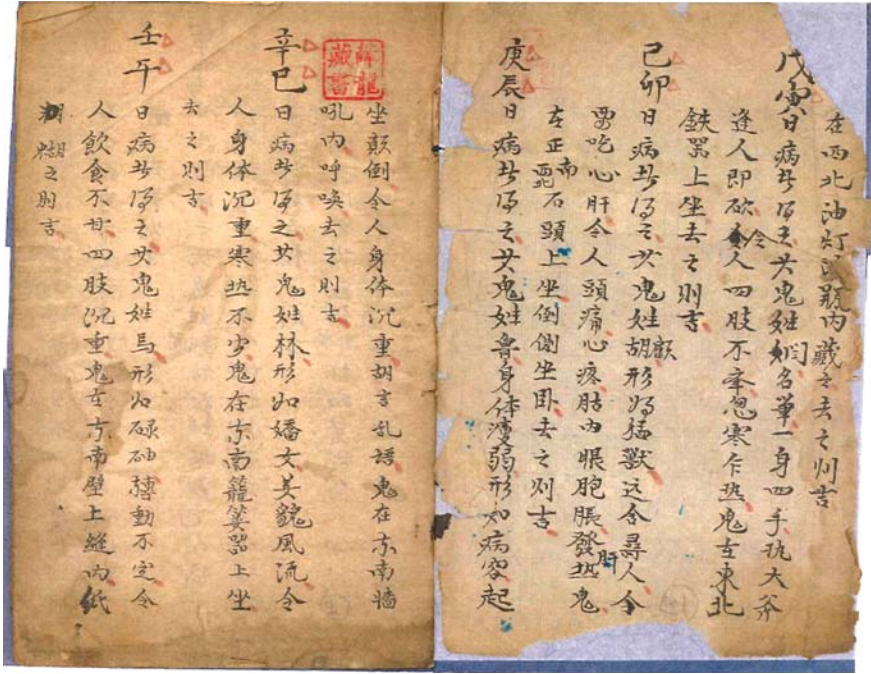 在西北油灯頭瓶内藏之去之则吉
戊寅日病者得之女鬼姓名单一身四手执大斧
逢人即砍令人四肢不牵忽寒乍热鬼在東北
鉄器上坐去之則吉
己卯日病者得之女鬼姓胡形如猛獸远舍尋人令
要吃心肝令人頭痛心疼肚内脹胞脹發热鬼
在正南石頭上坐倒側坐卧去之则吉
庚辰日病者得之女鬼姓魯身体瘦弱形如病容起
坐顛倒令人身体沉重胡言乱語鬼在东南墙
吼内呼喚去之則吉
辛巳日病者得之女鬼姓林形如嬌女美貌風流令
人身体沉重寒热不少鬼在东南籠箕器上坐
去之則吉
壬午日病者得之女鬼姓馬形如碌砷轉動不定令
人飲食不甘四肢沉重鬼在东南壁上縫内紙
糊之則吉
藏書